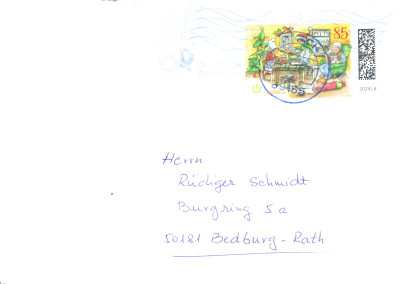 85
Herrn
Rüdiger Schmidt
Burgring 5a
50181 Bedburg-Rath